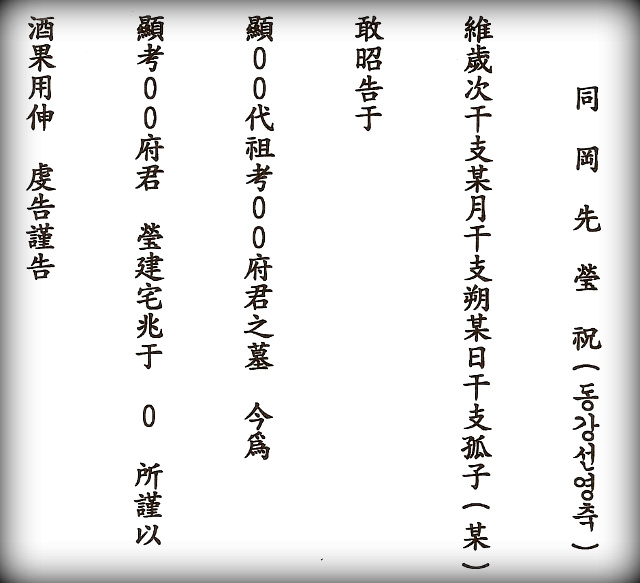 同岡先瑩祝(동강선영축)
維歲次干支某月干支朔某日干支孤子(某)
敢昭告于
顯00代祖考00府君之墓 今爲
顯考00府君 瑩建宅兆于 0 所謹以
酒果用伸 虔告謹告